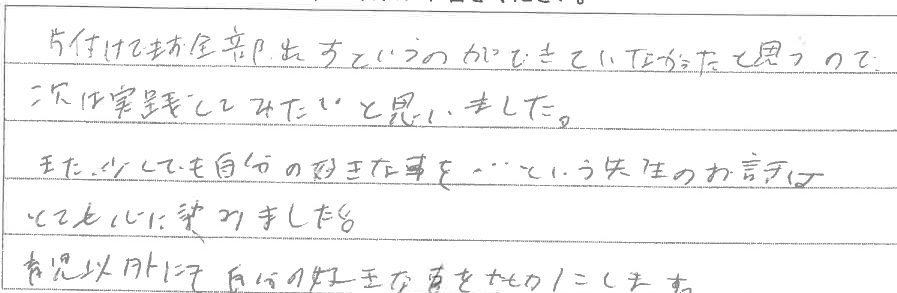 片付けでまず全部出すというのができていなかったと思うので、
次は実践してみたいと思いました。
また、少しでも自分の好きな事を…という先生のお話は
とても心に染みました。
育児以外にも自分の好きな事を大切にします。